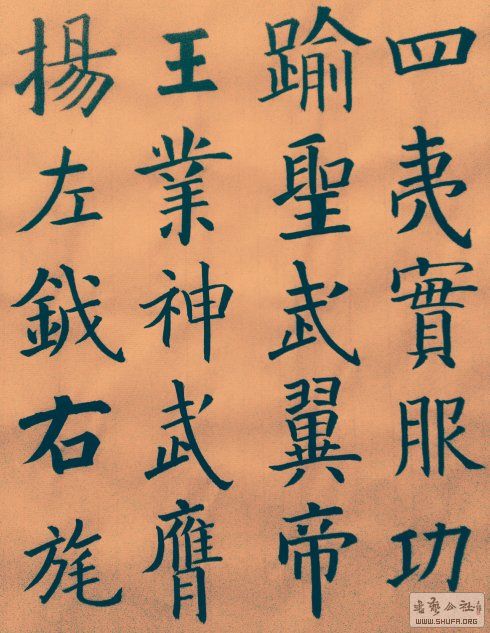 四夷實服功
踰聖武翼帝
王業神武膺
揚左鉞右旄
書藝公社
WWW.SHUFA.ORG